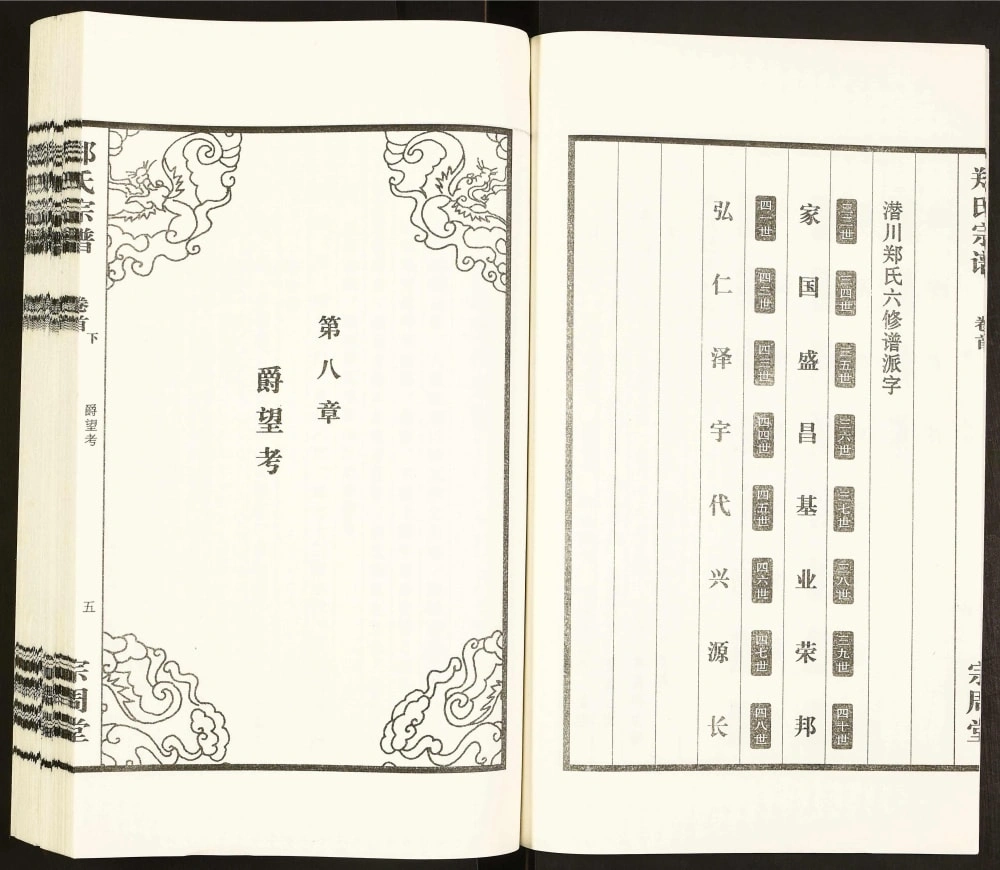 郑氏宗谱 卷首 宗周堂
潜川郑氏六修谱派字
三三世 三四世 三五世 三六世 三七世 三八世 三九世 四十世
家 国 盛 昌 基 业 荣 邦
四一世 四二世 四三世 四四世 四五世 四六世 四七世 四八世
弘 仁 泽 宇 代 兴 源 长
第八章
爵望考
郑氏宗谱 卷首下 爵望考 五 宗周堂